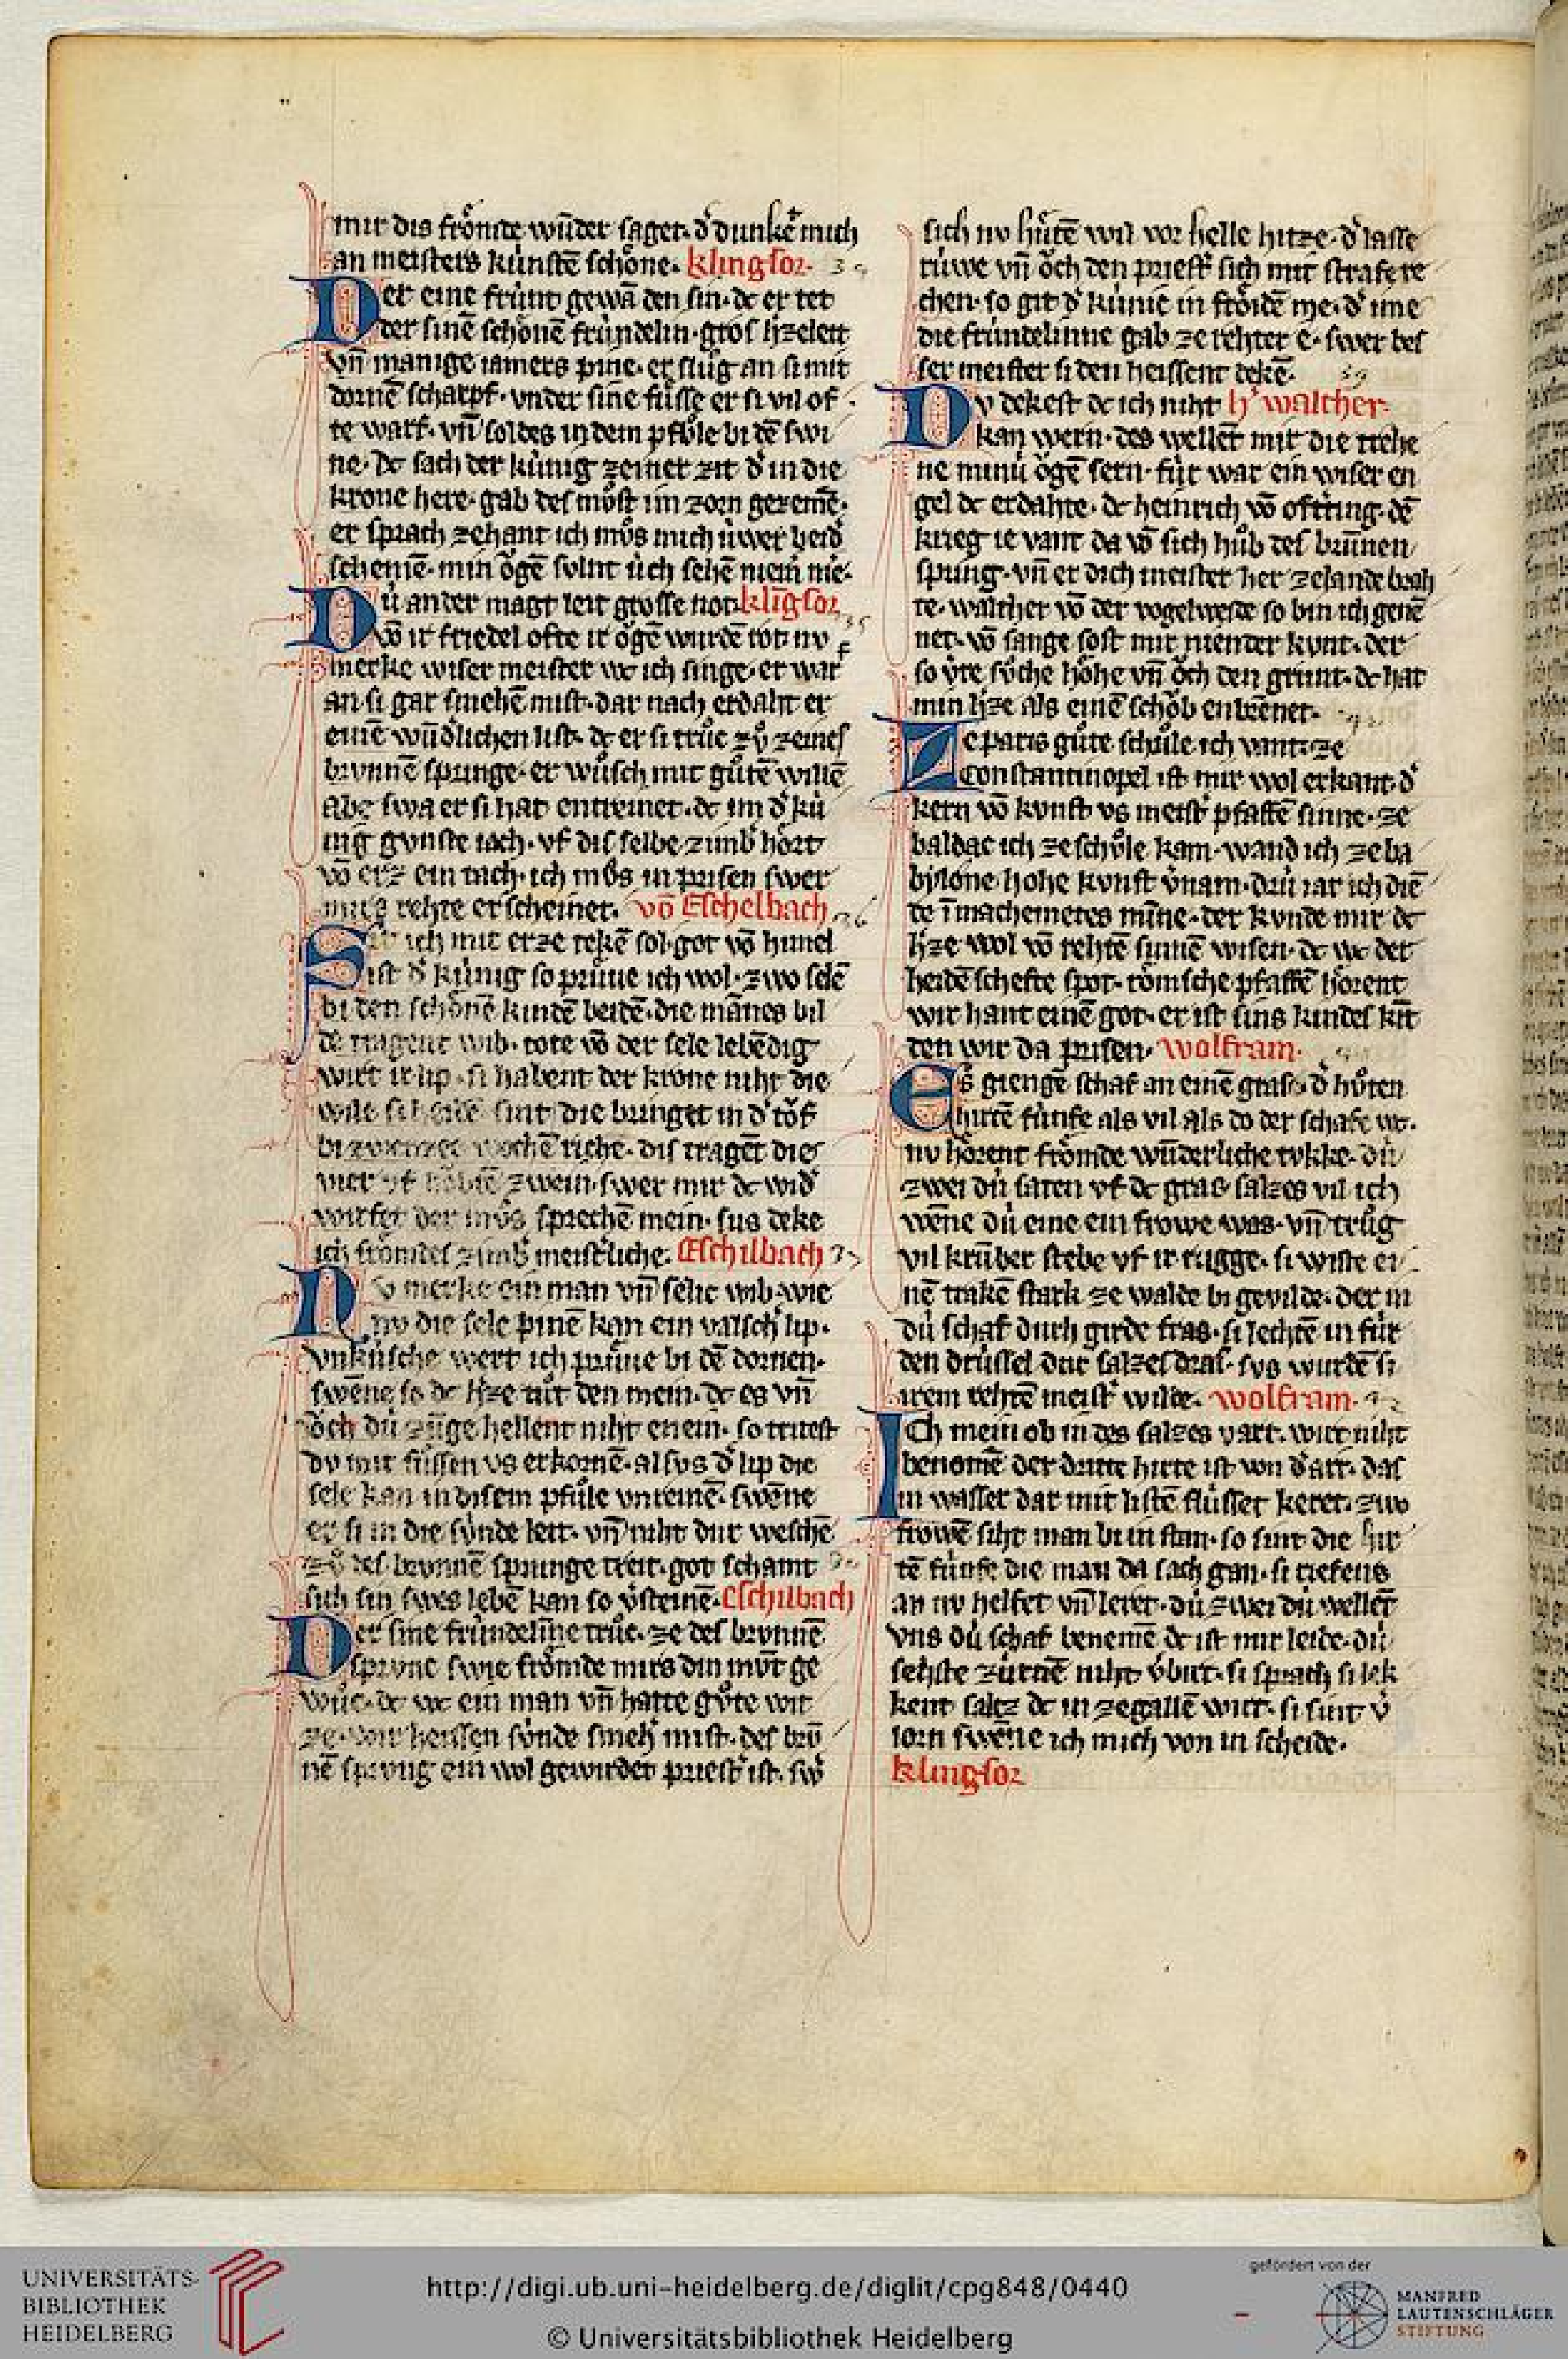 mir dis frömde wūder saget. d' dunkē mich
an meisters kúnstē schöne. klingsor. 34
Der eine frúnt gewā den sin. dc er tet
der sinē schönē frúndelin. gros h'zeleit
vn̄ manige iamers pine. er slůg an si mit
dornē scharpf. vnder sine fússe er si vil of
te warf. vn̄ soldes in dem pfůle bi dē swi
ne. Dc sach der kúnig zeiner zit d' in die
krone here. gab des můst im zorn gezemē.
er sprach zehant ich můs mich úwer beid'
schemē. min ögē solnt úch sehē niem' me.
Dú ander magt leit grosse not. klīgsor 35
vō ir friedel ofte ir ögē wurdē rot. nv
merke wiser meister wc ich singe. er warf
an si gar smehē mist. dar nach erdaht er
einē wūd'lichen list. dc er si trůc zů zeines
brvnnē springe. er wůsch mit gůtē willē
abe swa er si hat entreinet. dc im d' kú
nig gvnste iach. vf dis selbe zimb' hört
vō erz ein tach. ich můs in prisen swer
mirs rehte erscheinet. vō Eschelbach 36
Sit ich mit erze tekē sol. got vō himel
ist d' kúnig so průue ich wol. zwo selē
bi den schönē kindē beidē. die mānes bil
de tragent wib. tote vō der sele lebēdig
wirt ir lip. si habent der krone niht die
wile si heidē sint die bringet in d' töf
bi zwenzec wochē riche. dis tragēt die
vier vf höbtē zwein. swer mir dc wid'
wirfet der můs sprechē mein. sus teke
ich frömdes zimb' meist'liche. Eschilbach 37
Nv merke ein man vn̄ selic wib. wie
nv die sele pinē kan ein valsch' lip.
vnkúsche wert ich průue bi dē dornen.
swēne so dc h'ze tůt den mein. dc es vn̄
öch dú zūge hellent niht enein. so tritest
dv mit fússen vs erkornē. alsvs d' lip die
sele kan in disem pfůle vnreinē. swēne
er si in die súnde leit. vn̄ niht dur welschē
zů des brvnnē springe treit. got schamt 38
sich sin swes lebē kan so v'steinē. Eschilbach
Der sine frúndelīne trůc. ze des brvnnē
sprvnc swie frömde mirs din mvt ge
wůc. dc wc ein man vn̄ hatte gůte wit
ze. wir heissen súnde smeh' mist. des brv̄
nē sprvng ein wol gewirdet priest' ist. sw'
sich nv hůtē wil vor helle hitze. d' lasse
rúwe vn̄ öch den priest' sich mit strafe re
chen. so git d' kúnic in fröidē me. d' ime
die frúndelinne gab ze rehter e. swer bes
ser meister si den heissent tekē. 39
Dv dekest dc ich niht h' walther.
kan wern. des wellēt mir die riche
ne minú ögē sern. fúr war ein wiser en
gel dc erdahte. dc heinrich vō oftring. dē
krieg ie vant da vō sich hůb des brūnen
spring. vn̄ er dich meister her zelande brah
te. walther vō der vogelweide so bin ich genē
net. vō sange sost mir niender kvnt. der
so v're sůche höhe vn̄ öch den grunt. dc hat
min h'ze als einē schöb enbrēnet. 40
Ze paris gůte schůle ich vant. ze
constantinopel ist mir wol erkant. d'
kern vō kvnst vs meist' pfaffē sinne. ze
baldac ich ze schůle kam. wand ich ze ba
bilone hohe kvnst v'nam. drú iar ich diē
te ī machemetes mīne. der kvnde mir dc
h'ze wol vō rehtē sinnē wisen. dc wc der
heidē schefte spot. römsche pfaffē hörent
wir hant einē got. er ist sins kindes kīt
den wir da prisen. wolfram. 41
Es giengē schaf an einē grase d' hůten
hirtē fúnfe als vil als do der schafe wc.
nv hörent frömde wūderliche tvkke. dú
zwei dú saten vf dc gras salzes vil ich
wēne dú eine ein frowe was. vn̄ trůg
vil krūber stebe vf ir rugge. si wiste ei
nē traken stark ze walde bi gevilde. der in
dú schaf durh girde fras. si lechtē in fúr
den drússel dur salzes dras. svs wurdē si
irem rehtē meist' wilde. wolfram. 42
Ich mein ob in des salzes vart. wirt niht
benomē der dritte hirte ist von d' art. das
in wasser dar mit listē flússet keret. zwo
frowē siht man bi in stan. so sint die hir
tē fúnfe die man da sach gan. si riefens
an nv helfet vn̄ leret. dú zwei dú wellēt
vns dú schaf benemē dc ist mir leide. dú
sehste zúrnē niht v'birt. si sprach si lek
kent saltz dc in ze gallē wirt. si sint v'
lorn swēne ich mich von in scheide.
klingsor
UNIVERSITÄTS-
BIBLIOTHEK
HEIDELBERG
http://digi.ub.uni-heidelberg.de/diglit/cpg848/0440
© Universitätsbibliothek Heidelberg
gefördert von der
MANFRED
LAUTENSCHLÄGER
STIFTUNG